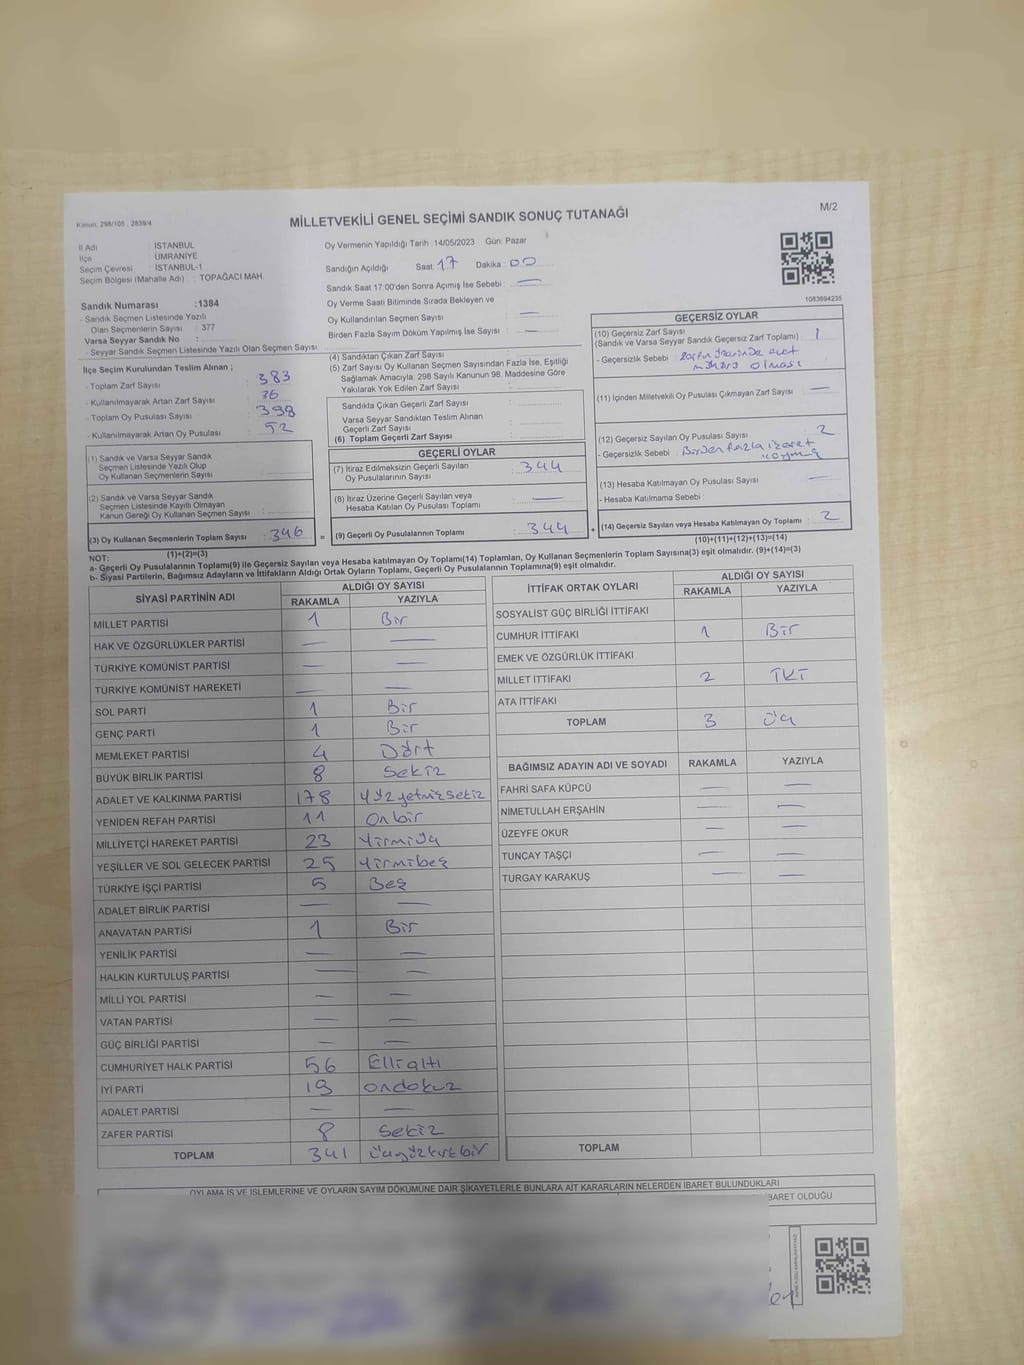 Kanun. 298/105 . 2839/4
MİLLETVEKİLİ GENEL SEÇİMİ SANDIK SONUÇ TUTANAĞI
M/2
İl Adı : İSTANBUL
İlçe : ÜMRANİYE
Seçim Çevresi : İSTANBUL-1
Seçim Bölgesi (Mahalle Adı) : TOPAĞACI MAH.
Sandık Numarası :1384
- Sandık Seçmen Listesinde Yazılı
Olan Seçmenlerin Sayısı : 377
Varsa Seyyar Sandık No :
- Seyyar Sandık Seçmen Listesinde Yazılı Olan Seçmen Sayısı:
İlçe Seçim Kurulundan Teslim Alınan ;
- Toplam Zarf Sayısı : 383
- Kullanılmayarak Artan Zarf Sayısı : 36
- Toplam Oy Pusulası Sayısı : 398
- Kullanılmayarak Artan Oy Pusulası : 52
(1) Sandık ve Varsa Seyyar Sandık
Seçmen Listesinde Yazılı Olup
Oy Kullanan Seçmenlerin Sayısı
(2) Sandık ve Varsa Seyyar Sandık
Seçmen Listesinde Kayıtlı Olmayan
Kanun Gereği Oy Kullanan Seçmen Sayısı:
(3) Oy Kullanan Seçmenlerin Toplam Sayısı : 346
(1)+(2)=(3)
Oy Vermenin Yapıldığı Tarih :14/05/2023 Gün: Pazar
Sandığın Açıldığı Saat: 17 Dakika: 00
Sandık Saat 17:00'den Sonra Açılmış İse Sebebi : —
Oy Verme Saati Bitiminde Sırada Bekleyen ve
Oy Kullandırılan Seçmen Sayısı : —
Birden Fazla Sayım Döküm Yapılmış İse Sayısı : —
(4) Sandıktan Çıkan Zarf Sayısı :
(5) Zarf Sayısı Oy Kullanan Seçmen Sayısından Fazla İse, Eşitliği
Sağlamak Amacıyla; 298 Sayılı Kanunun 98. Maddesine Göre
Yakılarak Yok Edilen Zarf Sayısı :
Sandıkta Çıkan Geçerli Zarf Sayısı :
Varsa Seyyar Sandıktan Teslim Alınan
Geçerli Zarf Sayısı :
(6) Toplam Geçerli Zarf Sayısı :
GEÇERLİ OYLAR
(7) İtiraz Edilmeksizin Geçerli Sayılan
Oy Pusulalarının Sayısı : 344
(8) İtiraz Üzerine Geçerli Sayılan veya
Hesaba Katılan Oy Pusulası Toplamı : —
= (9) Geçerli Oy Pusulalarının Toplamı : 344 +
1083694235
GEÇERSİZ OYLAR
(10) Geçersiz Zarf Sayısı
(Sandık ve Varsa Seyyar Sandık Geçersiz Zarf Toplamı) : 1
- Geçersizlik Sebebi : zarfın üzerinde evet
mührü olması
(11) İçinden Milletvekili Oy Pusulası Çıkmayan Zarf Sayısı : —
(12) Geçersiz Sayılan Oy Pusulası Sayısı : 2
- Geçersizlik Sebebi : Birden fazla işaret
(13) Hesaba Katılmayan Oy Pusulası Sayısı : —
- Hesaba Katılmama Sebebi :
(14) Geçersiz Sayılan veya Hesaba Katılmayan Oy Toplamı : 2
(10)+(11)+(12)+(13)=(14)
NOT:
a- Geçerli Oy Pusulalarının Toplamı(9) ile Geçersiz Sayılan veya Hesaba katılmayan Oy Toplamı(14) Toplamları, Oy Kullanan Seçmenlerin Toplam Sayısına(3) eşit olmalıdır. (9)+(14)=(3)
b- Siyasi Partilerin, Bağımsız Adayların ve İttifakların Aldığı Ortak Oyların Toplamı, Geçerli Oy Pusulalarının Toplamına(9) eşit olmalıdır.
SİYASİ PARTİNİN ADI ALDIĞI OY SAYISI
RAKAMLA YAZIYLA
MİLLET PARTİSİ 1 Bir
HAK VE ÖZGÜRLÜKLER PARTİSİ — —
TÜRKİYE KOMÜNİST PARTİSİ — —
TÜRKİYE KOMÜNİST HAREKETİ — —
SOL PARTİ 1 Bir
GENÇ PARTİ 1 Bir
MEMLEKET PARTİSİ 4 Dört
BÜYÜK BİRLİK PARTİSİ 8 Sekiz
ADALET VE KALKINMA PARTİSİ 178 Yüzyetmişsekiz
YENİDEN REFAH PARTİSİ 11 Onbir
MİLLİYETÇİ HAREKET PARTİSİ 23 Yirmiüç
YEŞİLLER VE SOL GELECEK PARTİSİ 25 Yirmibeş
TÜRKİYE İŞÇİ PARTİSİ 5 Beş
ADALET BİRLİK PARTİSİ — —
ANAVATAN PARTİSİ 1 Bir
YENİLİK PARTİSİ — —
HALKIN KURTULUŞ PARTİSİ — —
MİLLİ YOL PARTİSİ — —
VATAN PARTİSİ — —
GÜÇ BİRLİĞİ PARTİSİ — —
CUMHURİYET HALK PARTİSİ 56 Elli altı
İYİ PARTİ 19 ondokuz
ADALET PARTİSİ — —
ZAFER PARTİSİ 8 Sekiz
TOPLAM 341 üçyüzkırkbir
İTTİFAK ORTAK OYLARI ALDIĞI OY SAYISI
RAKAMLA YAZIYLA
SOSYALİST GÜÇ BİRLİĞİ İTTİFAKI
CUMHUR İTTİFAKI 1 Bir
EMEK VE ÖZGÜRLÜK İTTİFAKI
MİLLET İTTİFAKI 2 İKİ
ATA İTTİFAKI
TOPLAM 3 üç
BAĞIMSIZ ADAYIN ADI VE SOYADI RAKAMLA YAZIYLA
FAHRİ SAFA KÜPCÜ — —
NİMETULLAH ERŞAHİN — —
ÜZEYFE OKUR — —
TUNCAY TAŞÇİ — —
TURGAY KARAKUŞ — —
TOPLAM
OYLAMA İŞ VE İŞLEMLERİNE VE OYLARIN SAYIM DÖKÜMÜNE DAİR ŞİKAYETLERLE BUNLARA AİT KARARLARIN NELERDEN İBARET BULUNDUKLARI
İBARET OLDUĞU